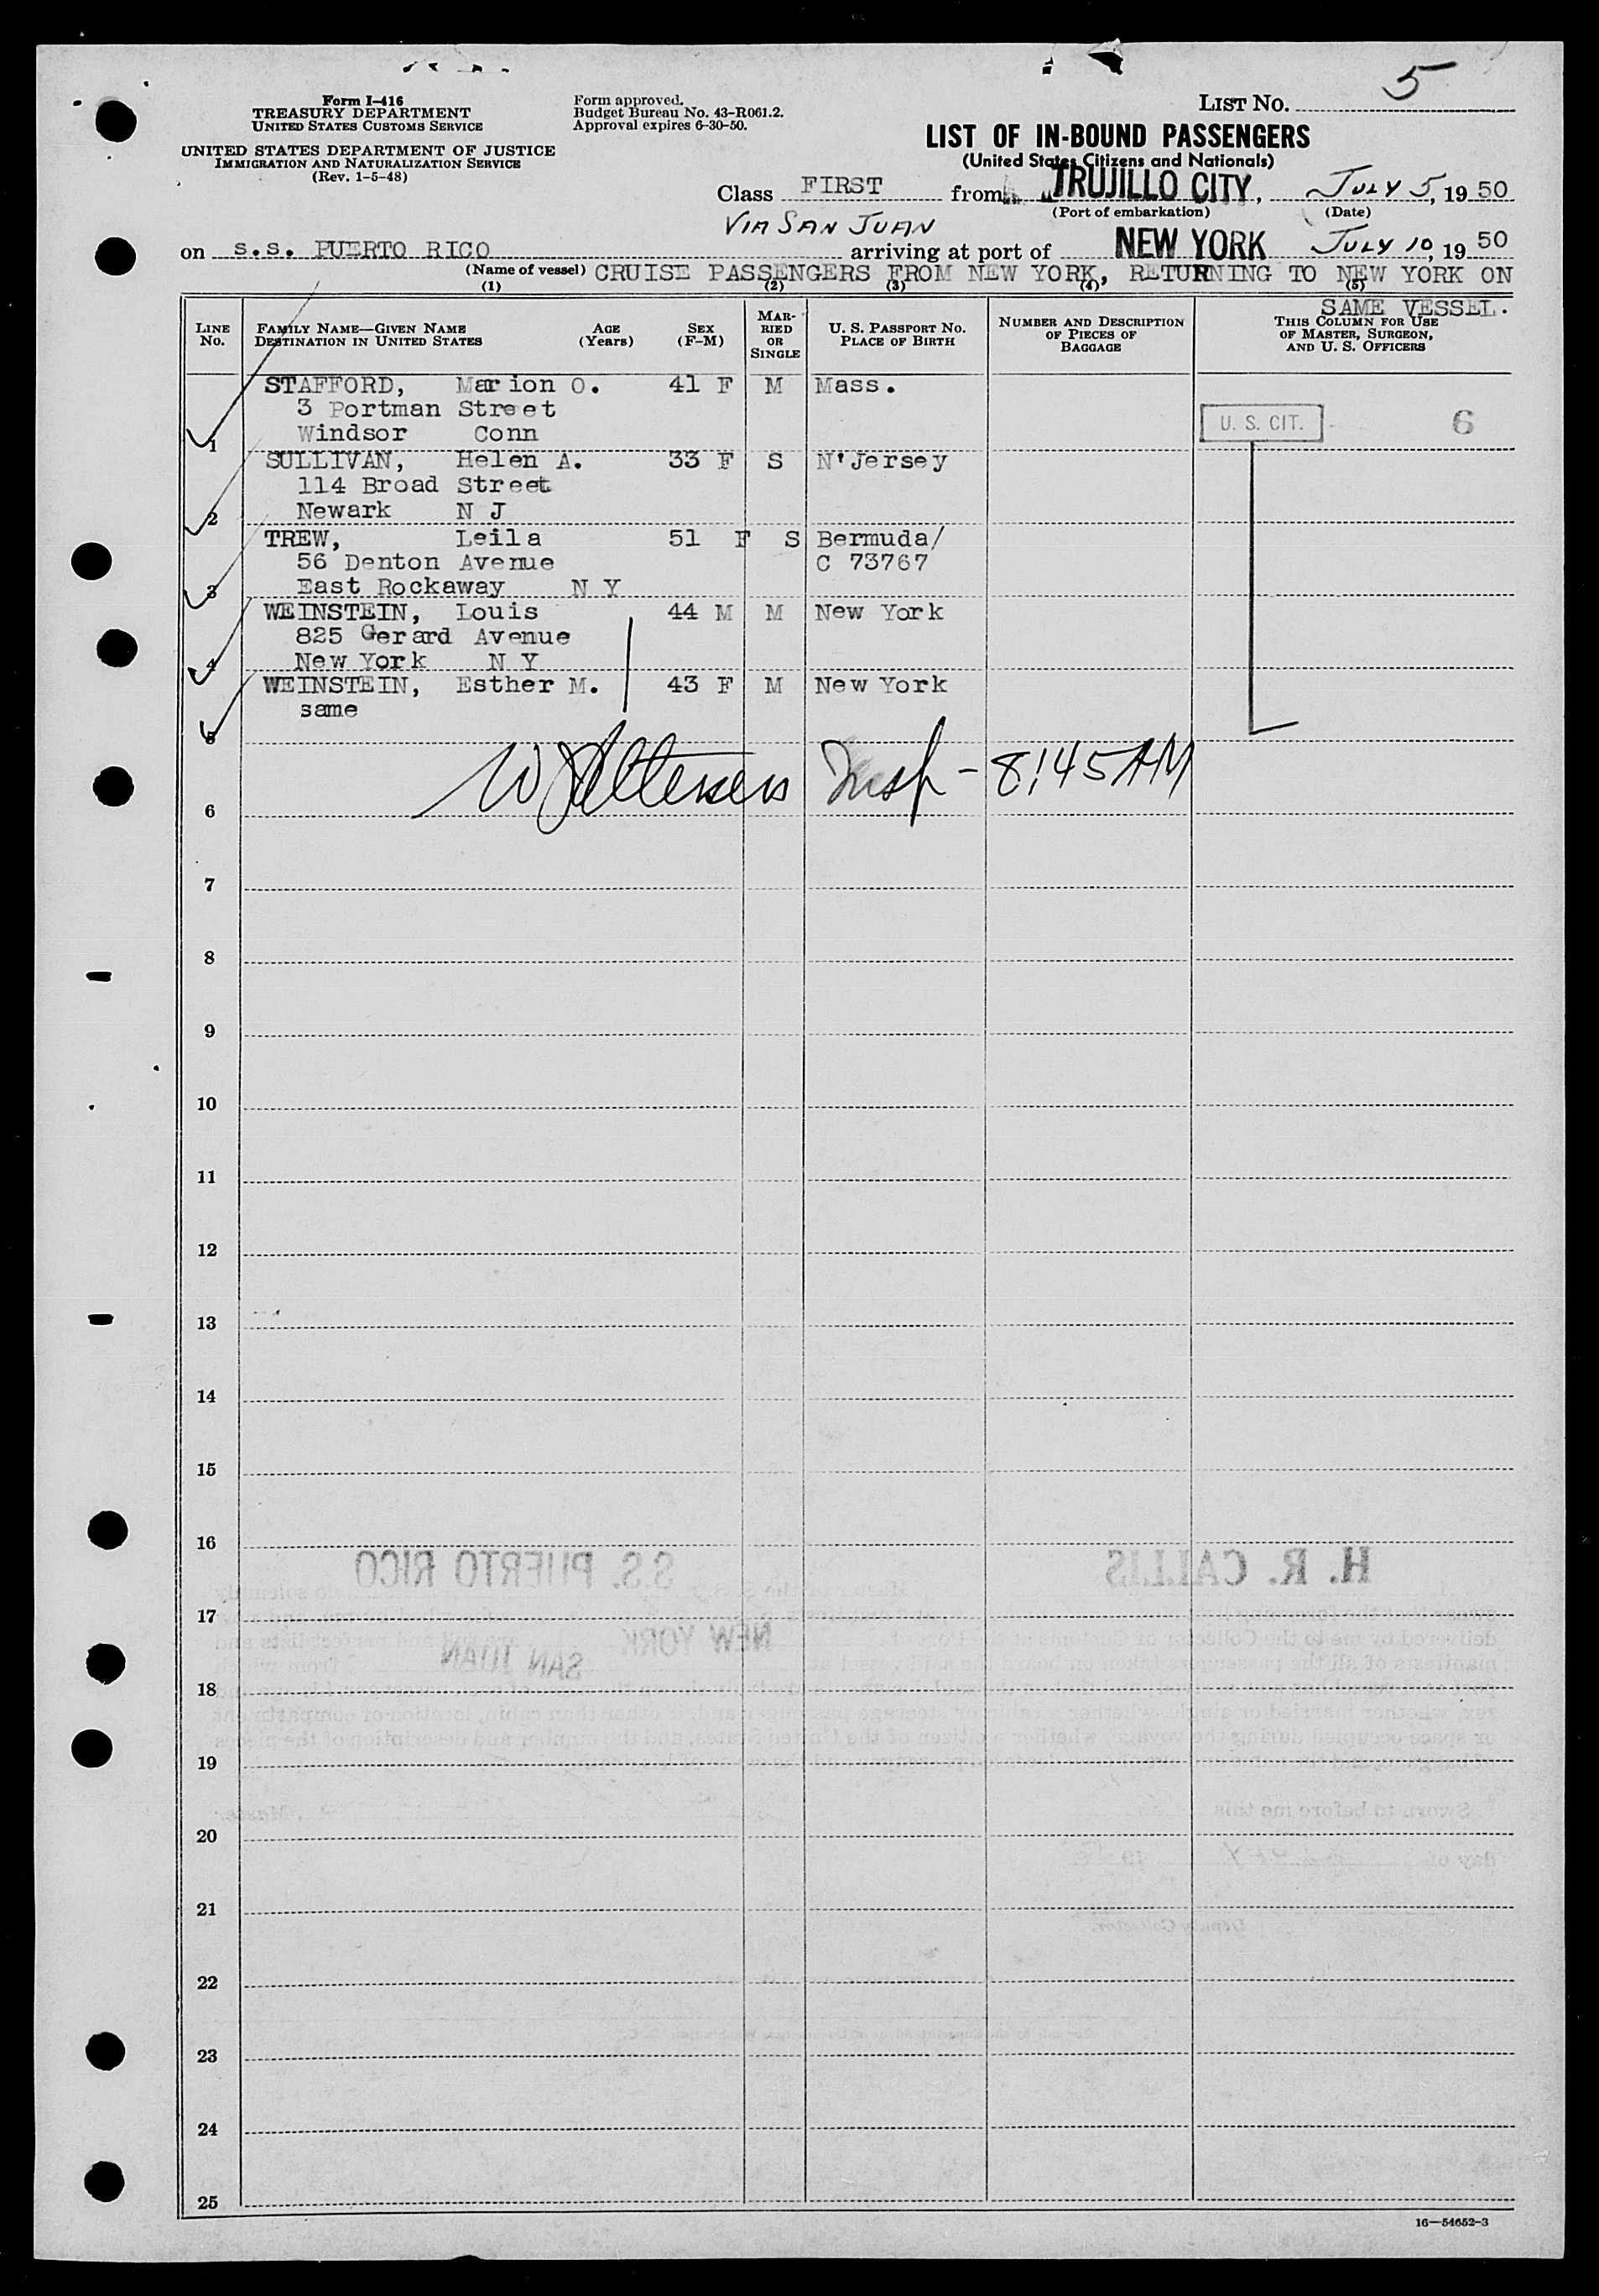 Form I-416
TREASURY DEPARTMENT
UNITED STATES CUSTOMS SERVICE
UNITED STATES DEPARTMENT OF JUSTICE
IMMIGRATION AND NATURALIZATION SERVICE
(Rev. 1-5-48)
Form approved.
Budget Bureau No. 43-R061.2.
Approval expires 6-30-50.
LIST No. 5
LIST OF IN-BOUND PASSENGERS
(United States Citizens and Nationals)
Class FIRST from TRUJILLO CITY, JULY 5, 1950
(Port of embarkation) (Date)
VIA SAN JUAN
on s.s. PUERTO RICO arriving at port of NEW YORK JULY 10, 1950
(Name of vessel) CRUISE PASSENGERS FROM NEW YORK, RETURNING TO NEW YORK ON
SAME VESSEL.
(1) (2) (3) (4) (5)
LINE No. FAMILY NAME—GIVEN NAME DESTINATION IN UNITED STATES AGE (Years) SEX (F-M) MARRIED OR SINGLE U. S. PASSPORT No. PLACE OF BIRTH NUMBER AND DESCRIPTION OF PIECES OF BAGGAGE THIS COLUMN FOR USE OF MASTER, SURGEON, AND U. S. OFFICERS
STAFFORD, Marion O. 41 F M Mass.
3 Portman Street
1 Windsor Conn U. S. CIT. 6
SULLIVAN, Helen A. 33 F S N'Jersey
114 Broad Street
2 Newark N J
TREW, Leila 51 F S Bermuda/
56 Denton Avenue C 73767
3 East Rockaway N Y
WEINSTEIN, Louis 44 M M New York
825 Gerard Avenue
4 New York N Y
WEINSTEIN, Esther M. 43 F M New York
same
5
Insp - 8:45 AM
6
7
8
9
10
11
12
13
14
15
16
S.S. PUERTO RICO H. R. CALLIS
17
NEW YORK
SAN JUAN
18
19
20
21
22
23
24
25
16—54652-3